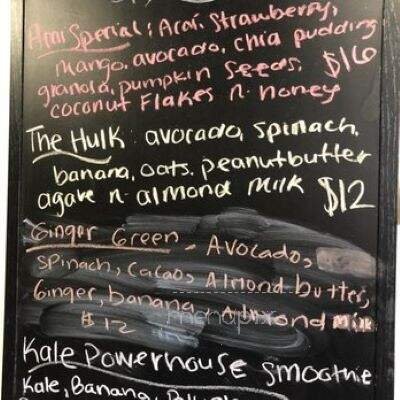 Acai Special: Acai, Strawberry,
mango, avocado, chia pudding
granola, pumpkin seeds, $16
coconut Flakes n. honey
The Hulk: avocado, spinach,
banana, oats, peanutbutter
agave n. almond milk $12
Ginger Green - Avocado,
spinach, cacao, Almond butter,
Ginger, banana Almond milk
$12
Kale Powerhouse smoothie
Kale, Banana,